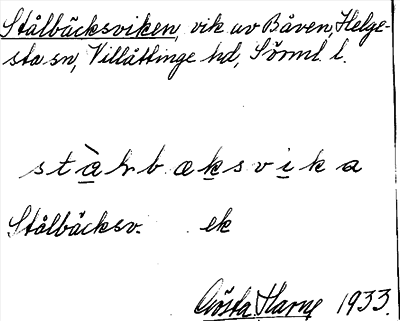 Stålbäcksviken, vik av Båven, Helge-
sta sn, Villåttinge hd, Sörml. l.
stàlbæksvika
Stålbäcksv. ek
Gösta Harne 1933.